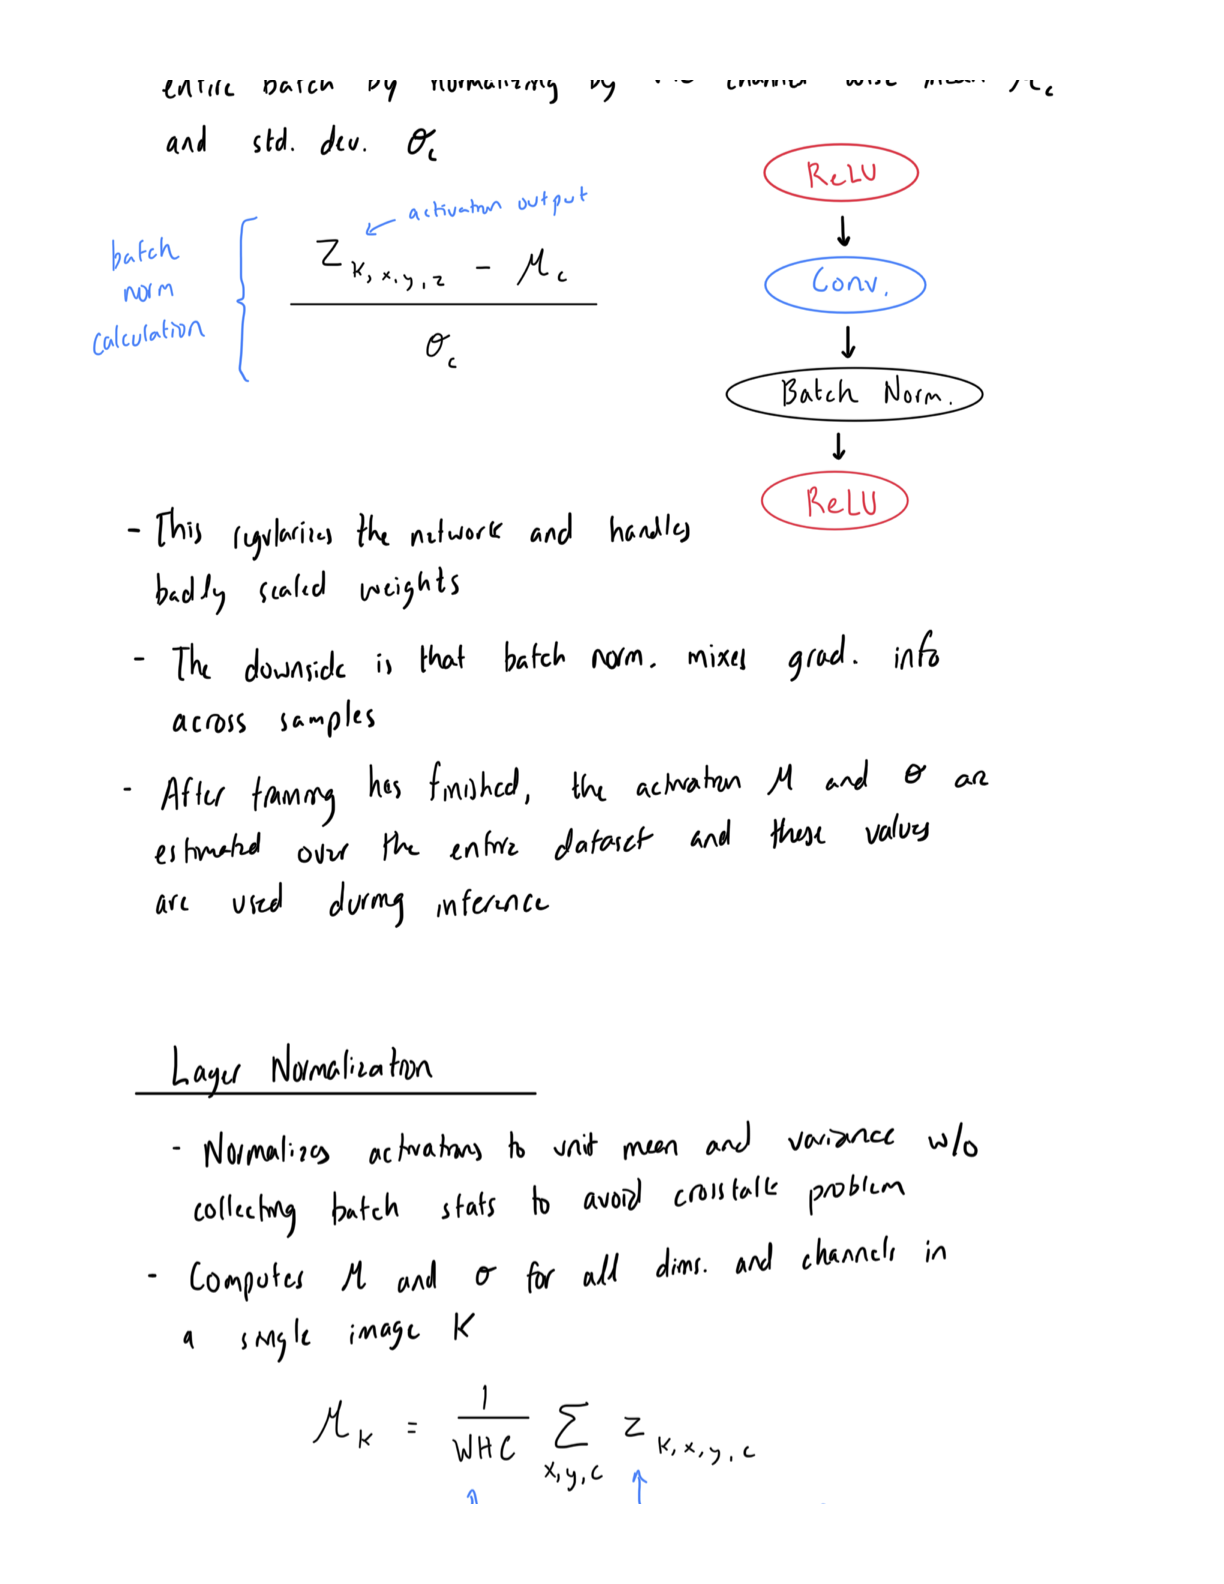 entire batch by normalizing by the channel wise mean μc
and std. dev. σc
activation output
batch
norm
calculation
Zk,x,y,z - μc
σc
ReLU
Conv.
Batch Norm.
ReLU
- This regularizes the network and handles
badly scaled weights
- The downside is that batch norm. mixes grad. info
across samples
- After training has finished, the activation μ and σ are
estimated over the entire dataset and these values
are used during inference
Layer Normalization
- Normalizes activations to unit mean and variance w/o
collecting batch stats to avoid crosstalk problem
- Computes μ and σ for all dims. and channels in
a single image K
μK = 1/WHC Σx,y,c zK,x,y,c